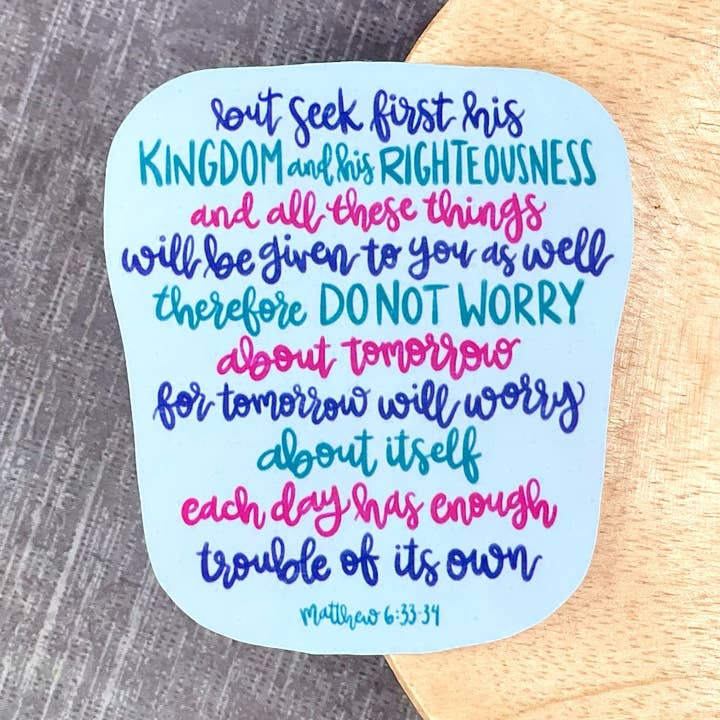 but seek first his
KINGDOM and his RIGHTEOUSNESS
and all these things
will be given to you as well
therefore DO NOT WORRY
about tomorrow
for tomorrow will worry
about itself
each day has enough
trouble of its own
matthew 6:33-34